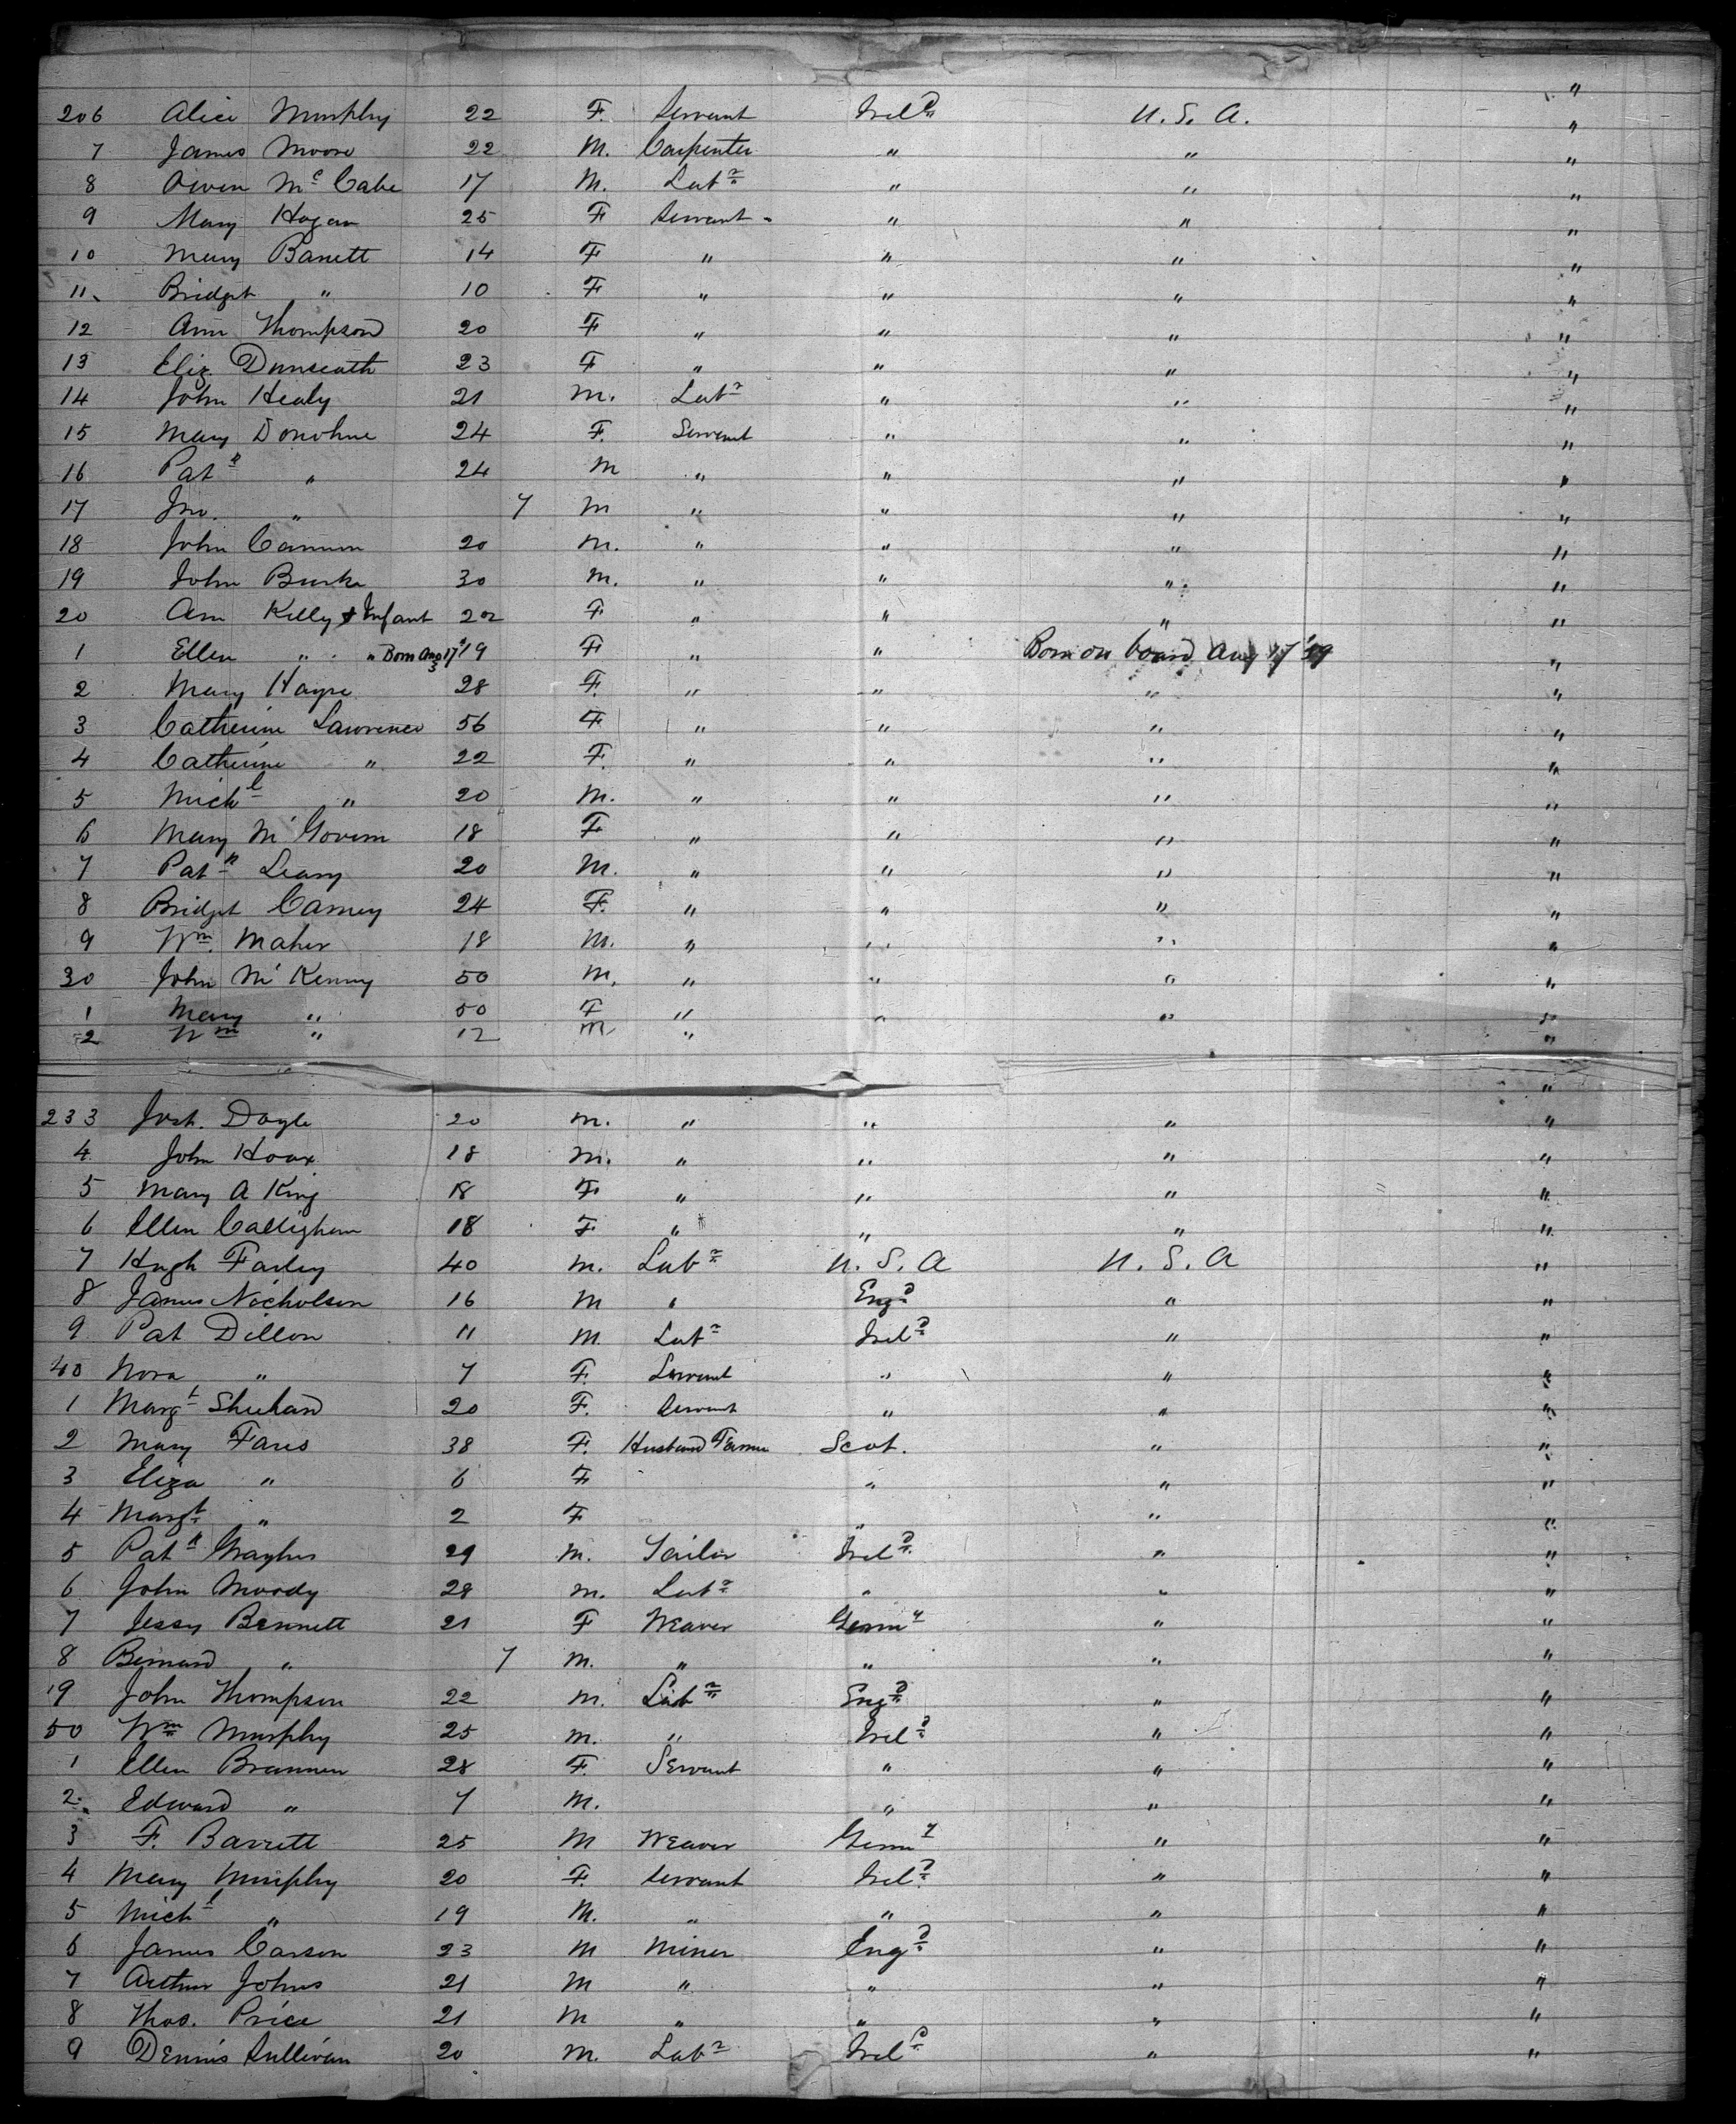 "
206 Alice Murphy 22 F. Servant Irel^d U.S.A. "
7 James Moore 22 M. Carpenter " " "
8 Owen M^c Cabe 17 M. Lab^r " " "
9 Mary Hogan 25 F Servant " " "
10 Mary Barrett 14 F " " " "
11 Bridget " 10 F " " " "
12 Ann Thompson 20 F " " " "
13 Eliz. Dunseath 23 F " " " "
14 John Healy 21 M. Lab^r " " "
15 Mary Donohue 24 F. Servant " " "
16 Pat^k " 24 M " " " "
17 Jno. " 7 M " " " "
18 John Cannon 20 M. " " " "
19 John Burke 30 M. " " " "
20 Ann Kelly & Infant 22 F " " " "
1 Ellen " " Born Aug 17 19 F " " Born on board Aug 17 '59 "
2 Mary Hayse 28 F. " " " "
3 Catherine Lawrence 56 F " " " "
4 Catherine " 22 F. " " " "
5 Mich^l " 20 M. " " " "
6 Mary M'Govern 18 F " " " "
7 Pat^k Leary 20 M. " " " "
8 Bridget Carney 24 F. " " " "
9 W^m Maher 18 M. " " " "
30 John M'Kenny 50 M. " " " "
1 Mary " 50 F " " " "
2 W^m " 12 M " "
"
233 Josh. Doyle 20 M. " " " "
4 John Hoax 18 M. " " " "
5 Mary A King 18 F " " " "
6 Ellen Calligham 18 F " " " "
7 Hugh Farley 40 M. Lab^r U.S.A U.S.A "
8 James Nicholson 16 M " Eng^d " "
9 Pat Dillon 11 M. Lab^r Irel^d " "
40 Nora " 7 F. Servant " " "
1 Marg^t Sheehan 20 F. Servant " " "
2 Mary Faris 38 F. Husband Farmer Scot. " "
3 Eliza " 6 F " " "
4 Marg^t " 2 F " " "
5 Pat^k 29 M. Tailor Irel^d " "
6 John Moody 28 M. Lab^r " " "
7 Jessy Bennett 21 F Weaver Germ^y " "
8 Bernard " 7 M. " " " "
9 John Thompson 22 M. Lab^r Eng^d " "
50 W^m Murphy 25 M. " Irel^d " "
1 Ellen Brannen 28 F. Servant " " "
2. Edward " 7 M. " " "
3 F. Barrett 25 M Weaver Germ^y " "
4 Mary Murphy 20 F. Servant Irel^d " "
5 Mich^l " 19 M. " " " "
6 James Carson 23 M Miner Eng^d " "
7 Arthur Johns 21 M " " " "
8 Thos. Price 21 M " " " "
9 Dennis Sullivan 20 M. Lab^r Irel^d " "